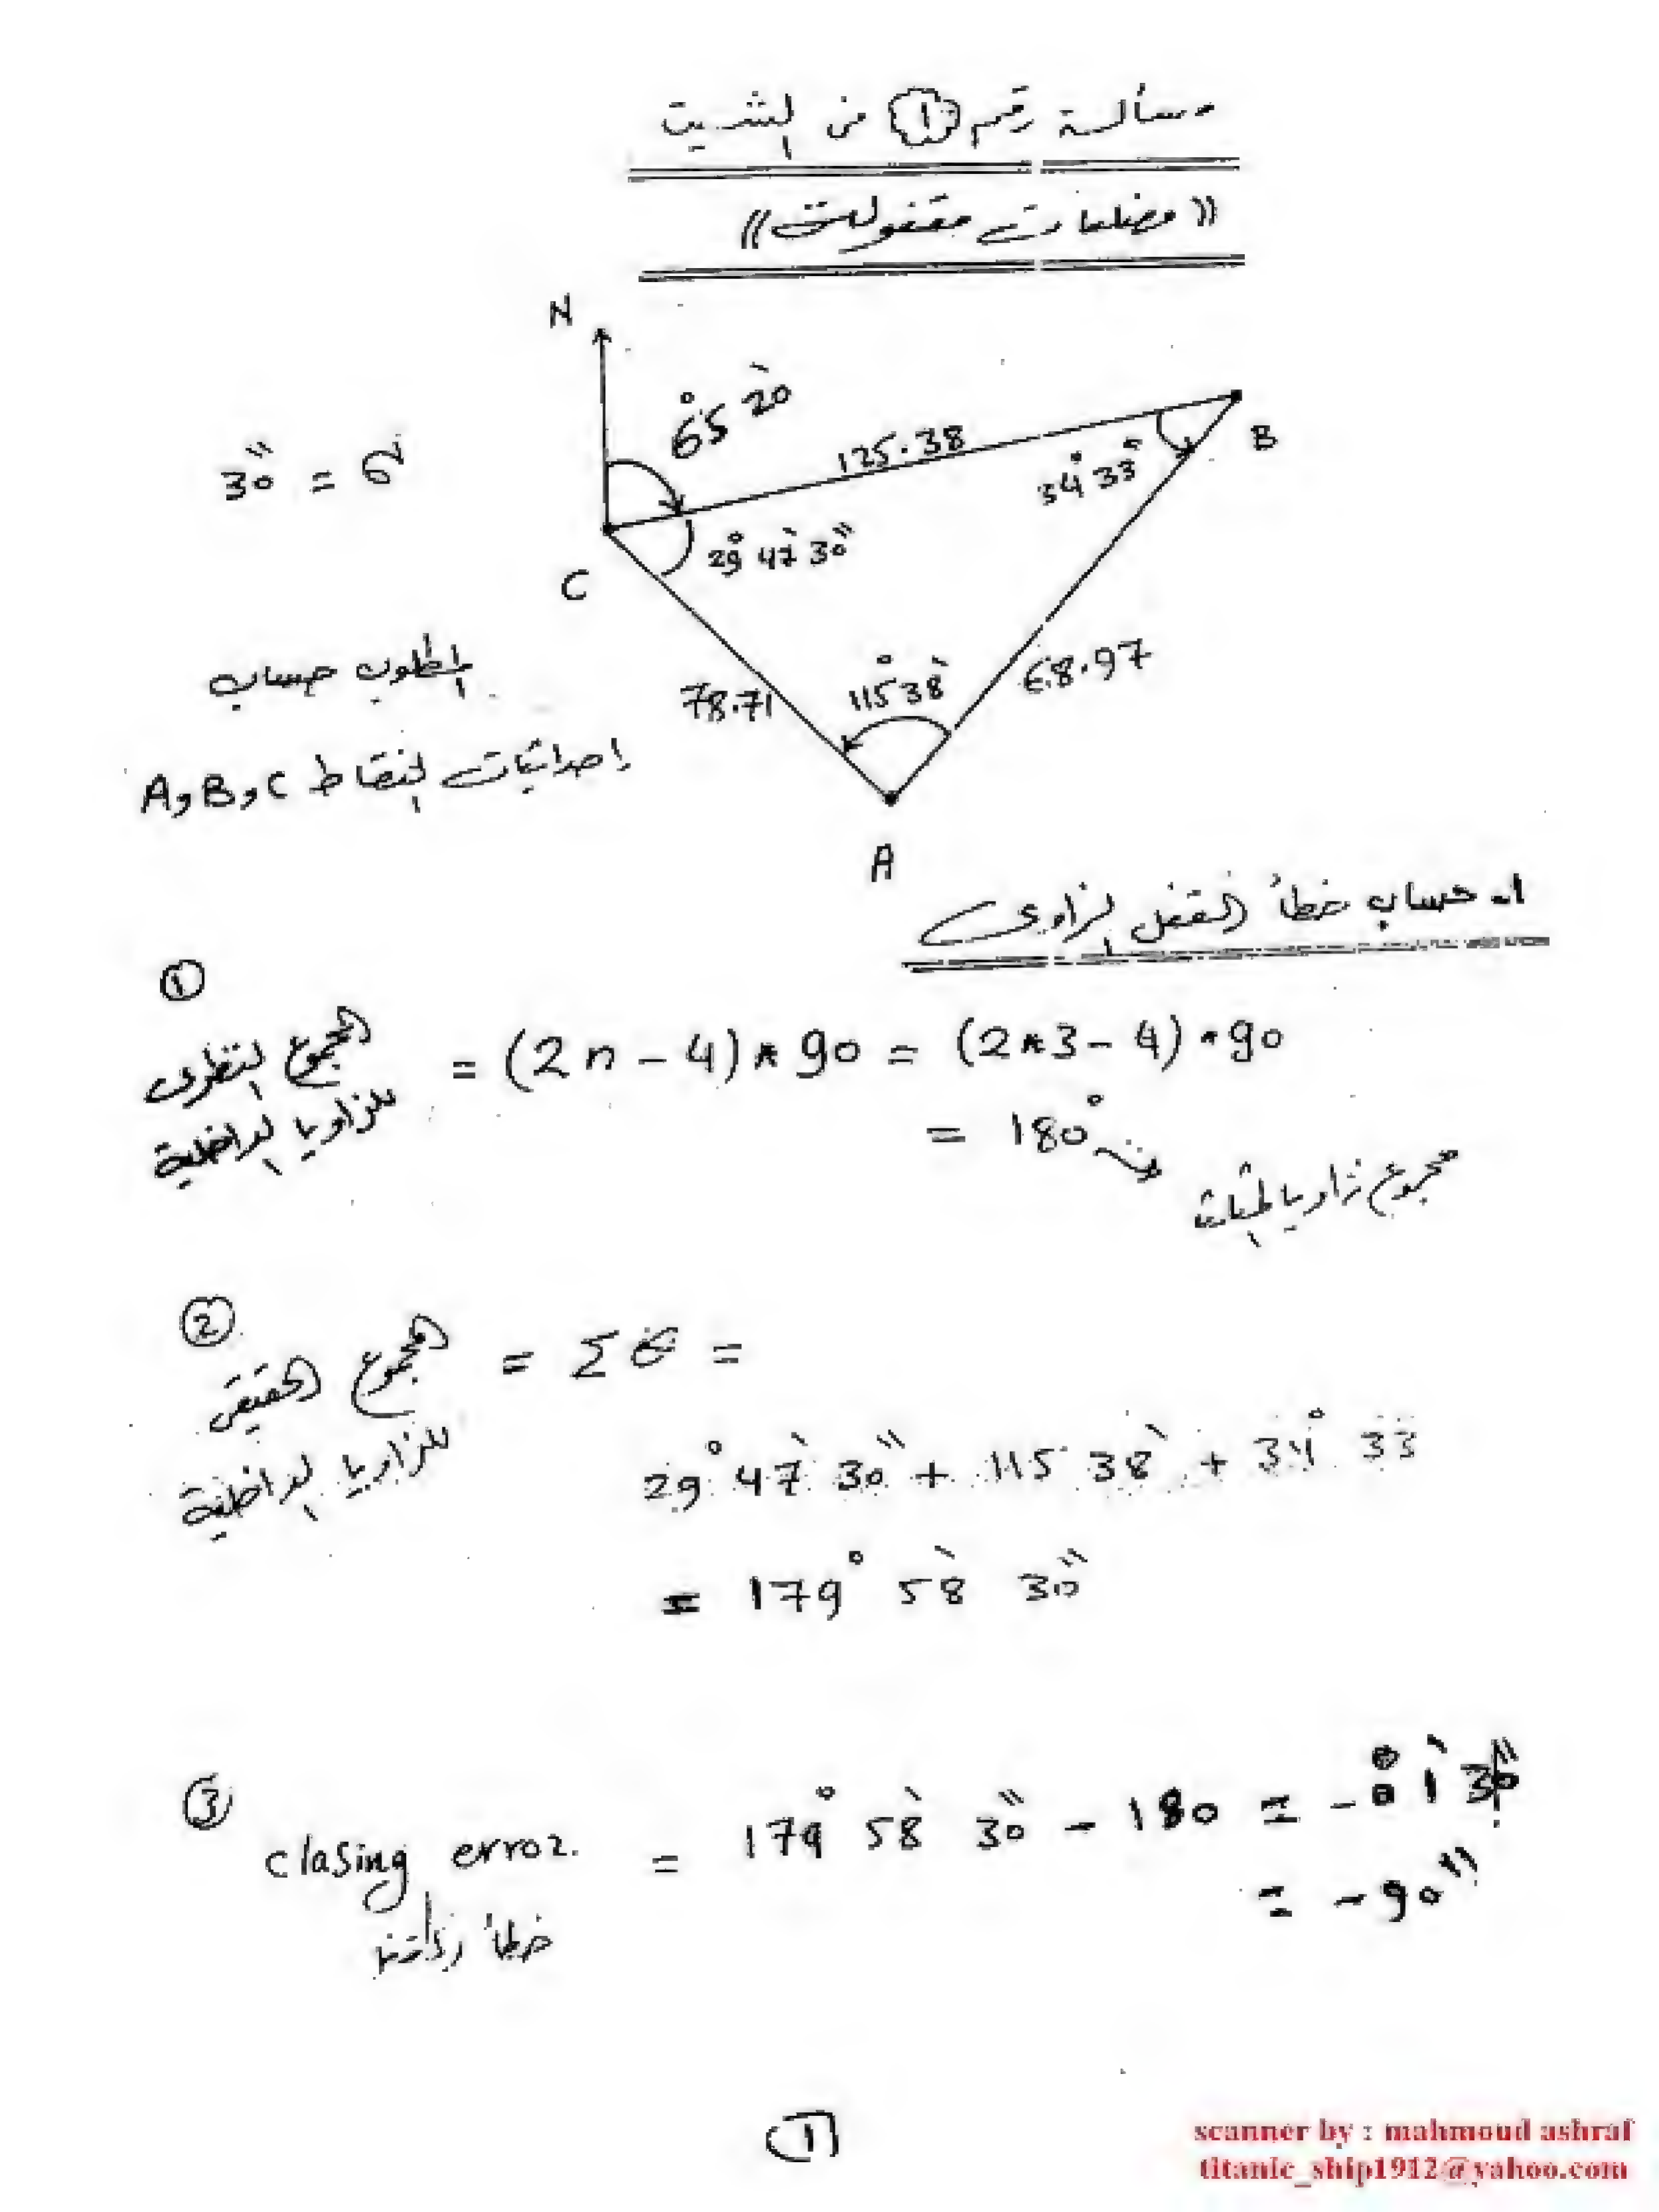 مسألة رقم ① من الشيت
«مضلعات مقفولة»
N
65° 20'
125.38
B
34° 33'
30" = σ
29° 47' 30"
C
المطلوب حساب
78.71
115° 38'
68.97
إحداثيات النقاط A, B, C
A
١- حساب خطأ القفل الزاوى
①
المجموع النظرى للزوايا الداخلية = (2n - 4) * 90 = (2*3 - 4) * 90
= 180°
مجموع زوايا المثلث
②
المجموع الحقيقى للزوايا الداخلية = Σθ =
29° 47' 30" + 115° 38' + 34° 33
= 179° 58' 30"
③
clasing error. = 179° 58' 30" - 180 = -0° 1' 30"
= -90"
خطأ
(1)
scanner by : mahmoud ashraf
titanic_ship1912@yahoo.com